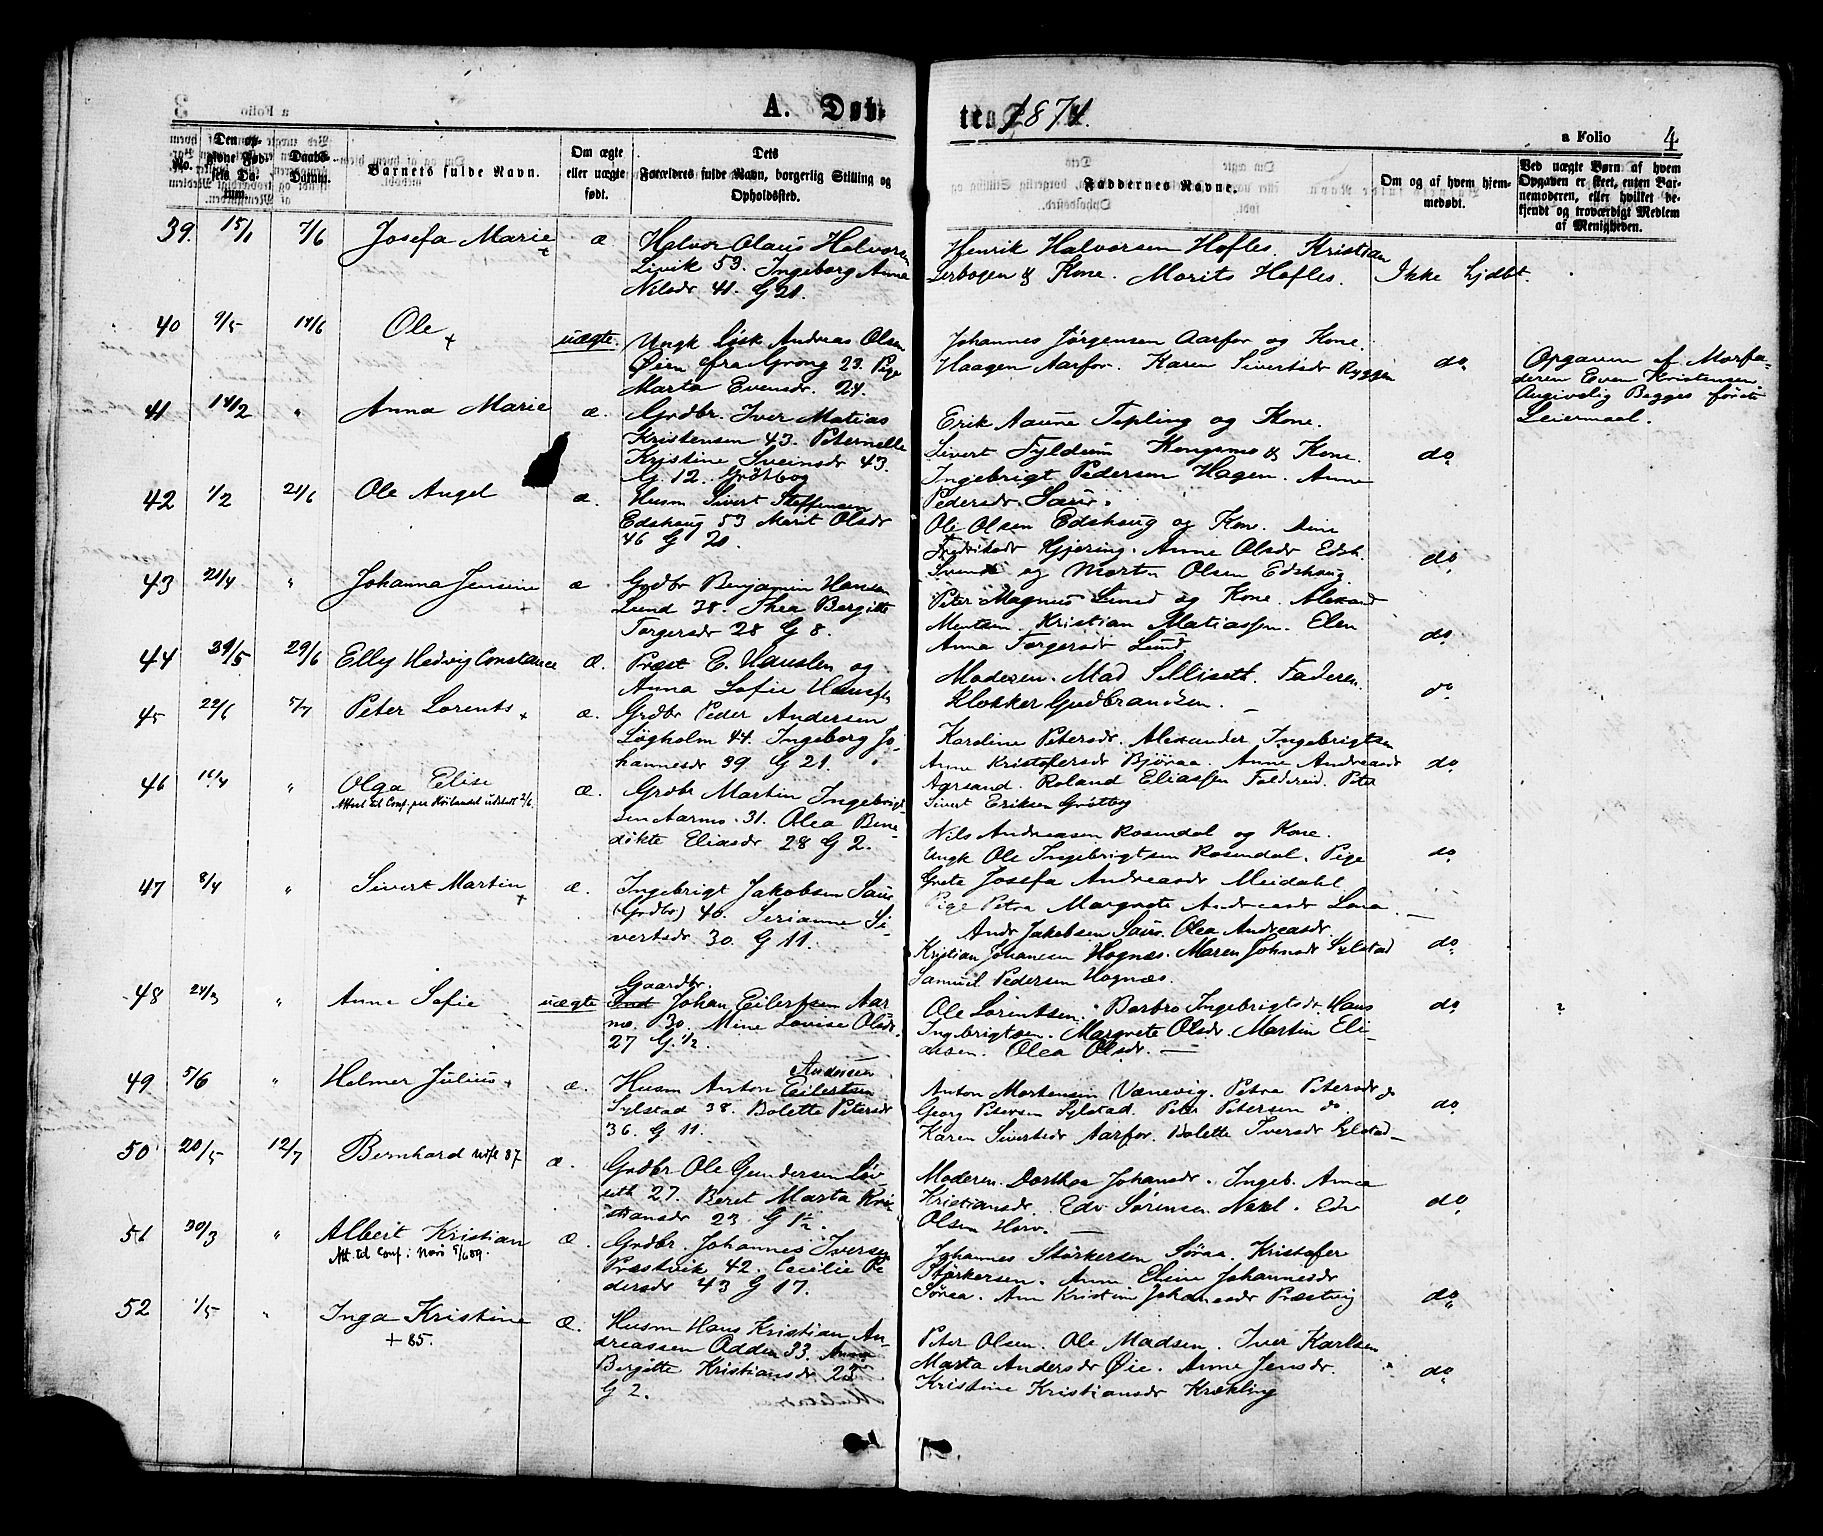 A. Døb-
ten 1874.
a Folio 4
No.
Den opgivne Fødsels Datum.
Daabs-Datum.
Barnets fulde Navn.
Om ægte eller uægte født.
Dets Forældres fulde Navn, borgerlig Stilling og Opholdssted.
Faddernes Navne.
Om og af hvem hjemmedøbt.
Ved uægte Børn af hvem Opgaven er skeet, enten Barnemoderen, eller hvilket bekjendt og troværdigt Medlem af Menigheden.
39. 15/1 7/6 Josefa Marie + æ
Halvor Olaus Halvorsen
Livik 53. Ingeborg Anna
Nilsdr 41. G 21.
Henrik Halvorsen Hofles. Kristian
Lerbogen & Kone. Morits Hofles.
Ikke hjdbt.
40 9/5 14/6 Ole + uægte.
Ungk Andreas Olsen
Øien fra Grong 23. Pige
Marta Evensdr. 24.
Johannes Jørgensen Aarfor og Kone.
Haagen Aarfor. Karen Sivertsdr Ryggen
do.
Opgaven af Morfa-
deren Even Kristensen.
Angivelig Begges første
Leiermaal.
41 14/2 " Anna Marie æ.
Grdbr. Iver Matias
Kristensen 43. Peternelle
Kristine Sveinsdr 43.
G 12. Grøtbog
Erik Aaune Tepling og Kone.
Sivert Fyldum Kongsmo & Kone.
Ingebrigt Pedersen Hagen. Anne
Pedersdr. Saur.
do.
42 1/2 21/6 Ole Angel æ.
Husm Sivert Steffensen
Edshaug 53 Marit Olsdr
46 G 20.
Ole Olsen Edshaug og Kone. Anne
Fredriksdr Gjering. Anne Olsdr Edsh.
Svend og Morten Olsen Edshaug.
do.
43 21/4 " Johanna Jensine + æ
Grdbr Benjamin Hansen
Lund 38. Thea Bergitte
Torgersdr 28 G 8.
Peter Magnus Lund og Kone. Alexand
Mentsen. Kristian Matiassen. Elen
Anna Torgersdr Lund.
do.
44 29/5 29/6 Elly Hedvig Constance æ.
Præst E. Hanslen og
Anna Sofie
Moderen. Mad Selliseth. Faderen.
Klokker Gudbrandsen.
do.
45 22/6 5/7 Peter Lorents + æ.
Grdbr Peder Andersen
Løgholm 44. Ingeborg Jo-
hannesdr 39. G 21.
Karoline Petersdr. Alexander Ingebrigtsen
Anne Kristofersdr Bjøraa. Anne Andreasdr
Agrsand. Roland Eliassen Foldereid. Peter
Sivert Eriksen Grøtbog
do.
46 16/4 " Olga Elise æ.
Grdbr Martin Ingebrigt-
sen Aarmo. 31. Olea Bene-
dikte Eliasdr 28 G 2.
Nils Andreasen Rosendal og Kone.
Ungk Ole Ingebrigtsen Rosendal. Pige
Grete Josefa Andreasdr Meidahl
Pige Petra Margrete Andreasdr Lona.
do.
47 8/4 " Sivert Martin + æ.
Ingebrigt Jakobsen Saur
(Grdbr) 40. Serianne Si-
vertsdr. 30. G 11.
Andr Jakobsen Saur. Olea Andreasdr.
Kristian Johansen Hognæs. Maren Johnsdr Sylstad
Samuel Pedersen Hognæs.
do.
48 24/3 " Anne Sofie uægte
Gaardbr.
Johan Eilertsen Aar
mo. 30. Mine Lovise Olsdr.
27 G. 1/2.
Ole Lorentsen. Barbro Ingebrigtsdr. Hans
Ingebrigtsen. Margrete Olsdr. Martin Eli-
assen. Olea Olsdr. —
do.
49 5/6 " Helmer Julius + æ.
Andersen
Husm Anton Eilertsen
Sylstad 38. Bolette Petersdr
36. G 11.
Anton Mortensen Vænevig. Petra Petersdr do
Georg Petersen Sylstad. Peter Petersen do
Karen Sivertsdr Aarfor. Bolette Iversdr Sylstad—
do
50 20/5 12/7 Bernhard udfl. 87 æ.
Grdbr Ole Gundersen Løv-
seth 27. Beret Marta Kri-
stiansdr 23 G 1½.
Moderen. Dorthea Johansdr. Ingeb. Anna
Kristiansdr. Edv Sørensen Naxl. Edv
Olsen Horv. —
do.
51 30/3 " Albert Kristian æ.
Att. til Conf: Nærø 5/6 89.
Grdbr. Johannes Iversen
Præstvik 42. Cecilie Pe
dersdr 43 G 17.
Johannes Størkersen Søraa. Kristofer
Størkersen. Anne Eline Johannesdr
Søraa. Ane Kristine Johannesdr Præstvig
do.
52 1/5 " Inga Kristine æ.
+ 85.
Husm Hans Kristian An
dreassen Odden 33.
Bergitte Kristiansdr 25
G 2.
Peter Olsen. Ole Madsen. Iver Karlsen
Marta Andersdr Øie. Anne Jensdr.
Kristine Kristiansdr Krækling
do